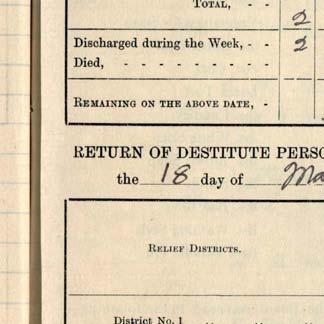 TOTAL, - - 2
Discharged during the Week, - - 2
Died, - - - - - - - - -
REMAINING ON THE ABOVE DATE, -
RETURN OF DESTITUTE
the 18 day of
RELIEF DISTRICTS.
District No. 1